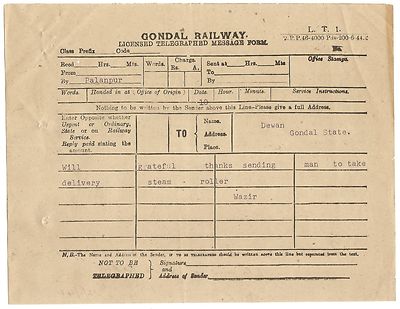 L. T. 1.
GONDAL RAILWAY.
LICENSED TELEGRAPHED MESSAGE FORM.
Class Prefix Code No.
Recd Hrs. Mts. Words. Charge. Rs. A. Sent at Hrs. Mts. Office Stamps.
From To
By Palanpur By
Words. Handed in at (Office of Origin) Date. Hour. Minuts. Service Instructions.
19
Nothing to be written by the Sender above this Line-Please give a full Address.
Enter Opposite whether
Urgent or Ordinary,
State or on Railway
Service.
Reply paid stating the
amount.
TO
Name. Dewan
Address. Gondal State.
Place.
Will grateful thanks sending man to take
delivery steam - roller
Wazir
N.B.-The Name and Address of the Sender, IF TO BE TELEGRAPHED should be written above this line but separated from the text.
NOT TO BE
TELEGRAPHED
Signature
and
Address of Sender